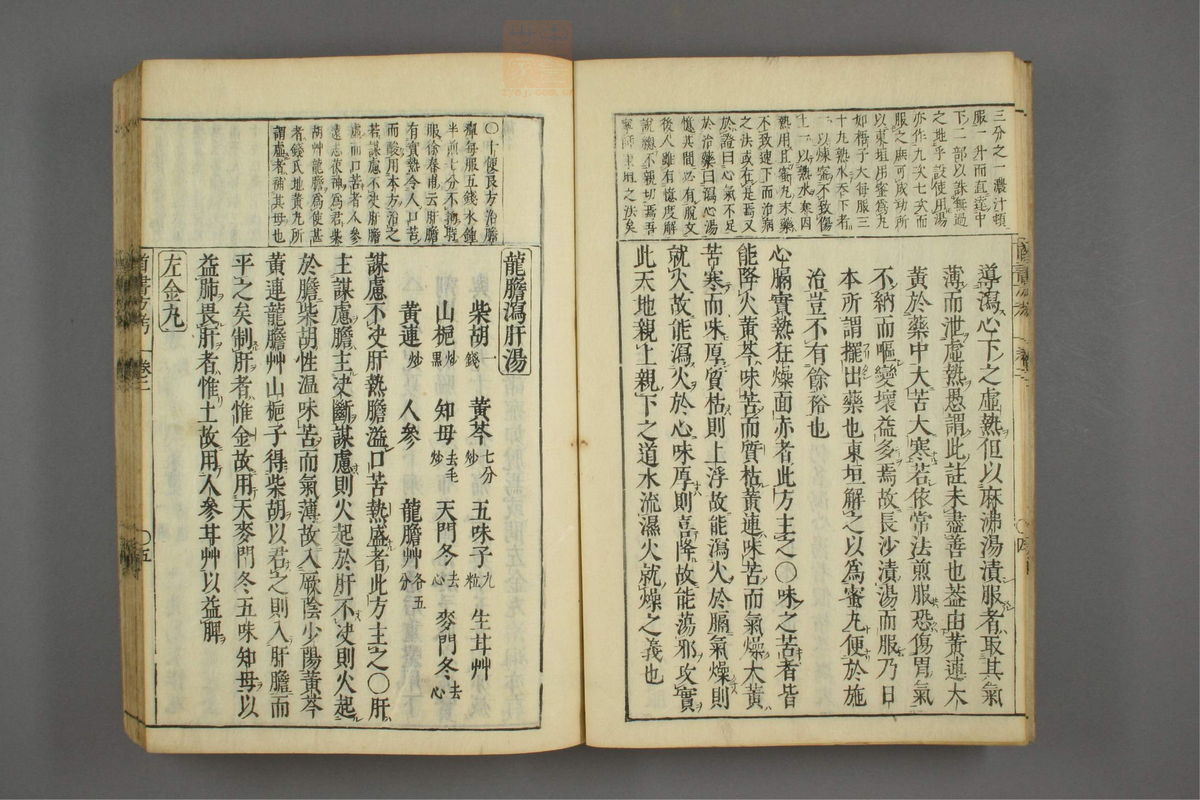 三分之一濃汁頓
服一升而直達中
下二部以誅無過
之地乎設使用湯
亦作九次七次而
服之庶可成功所
以東垣用蜜為丸
如梧子大每服三
十丸熟水吞下者
以煉蜜不致傷
熱用且蜜丸末藥
不致速下而治病
之法或有是焉又
於證曰心氣不足
於治藥曰瀉心湯
憶其間必有脫文
後人雖有憶度解
說總不親切焉吾
寧師東垣之法矣
導瀉心下之虛熱但以麻沸湯漬服者取其氣
薄而泄虛熱愚謂此註未盡善也蓋由黃連大
黃於藥中大苦大寒若依常法煎服恐傷胃氣
不納而嘔變壞益多焉故長沙漬湯而服乃日
本所謂擺出藥也東垣解之以為蜜丸便於施
治豈不有餘裕也
心膈實熱狂燥面赤者此方主之〇味之苦者皆
能降火黃芩味苦而質枯黃連味苦而氣燥大黃
苦寒而味厚質枯則上浮故能瀉火於膈氣燥則
就火故能瀉火於心味厚則喜降故能蕩邪攻實
此天地親上親下之道水流濕火就燥之義也
〇十便良方治膽
癉每服五錢水鍾
半煎七分不拘時
服徐春甫云肝膽
有實熱令人口苦
而酸用本方治之
若謀慮不決肝膽
虛而口苦者人參
遠志茯神為君柴
胡艸龍膽為使甚
者錢氏地黃丸所
謂虛者補其母也
龍膽瀉肝湯
柴胡一錢 黃芩七分炒 五味子九粒 生耳艸
山梔炒黑 知母去毛炒 天門冬去心 麥門冬去心
黃連炒 人參 龍膽艸各五分
謀慮不決肝熱膽溢口苦熱盛者此方主之〇肝
主謀慮膽主決斷謀慮則火起於肝不決則火起
於膽柴胡性溫味苦而氣薄故入厥陰少陽黃芩
黃連龍膽艸山梔子得柴胡以君之則入肝膽而
平之矣制肝者惟金故用天麥門冬五味知母以
益肺畏肝者惟土故用人參耳艸以益脾
左金丸
卷二
〇五